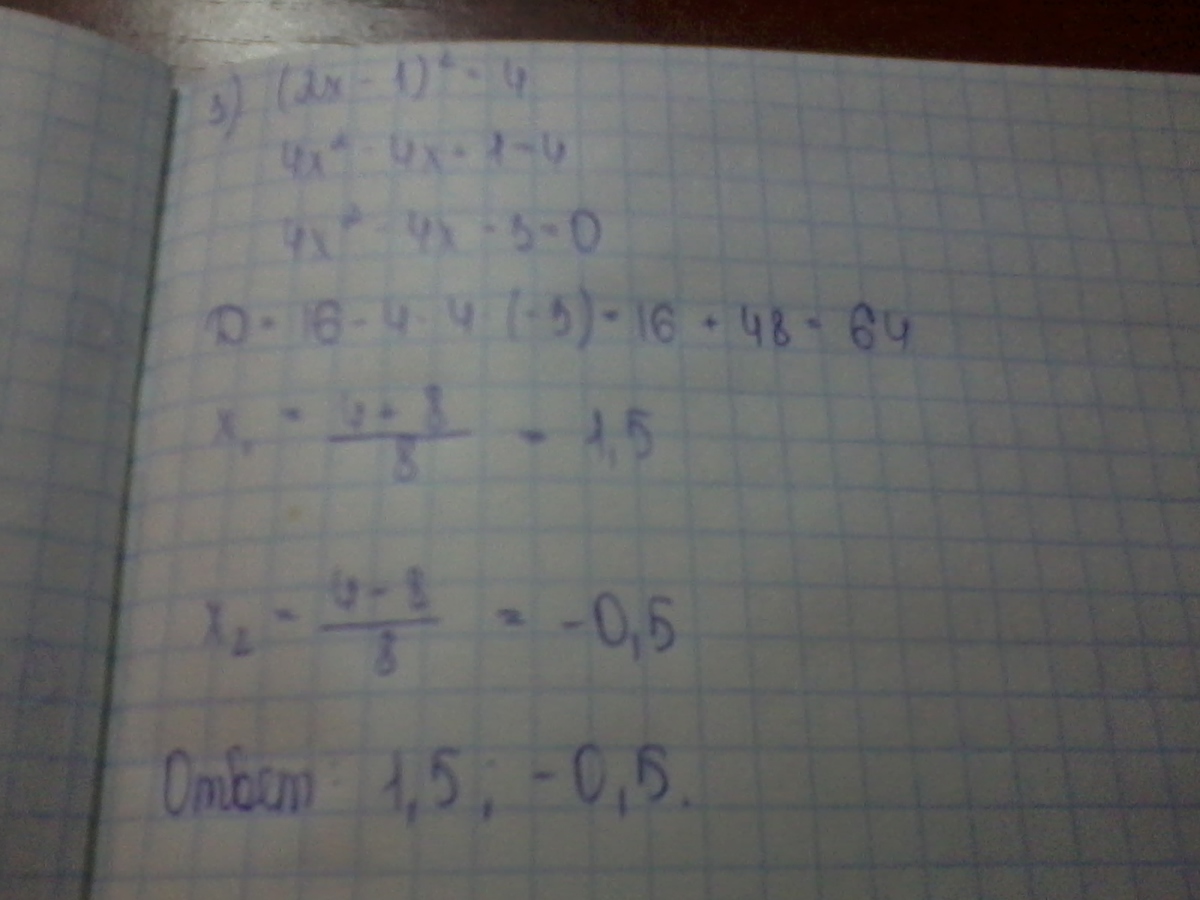 3) (2x - 1)² = 4
4x² - 4x + 1 = 4
4x² - 4x - 3 = 0
D = 16 - 4 · 4 · (-3) = 16 + 48 = 64
x₁ = (4 + 8) / 8 = 1,5
x₂ = (4 - 8) / 8 = -0,5
Ответ: 1,5 ; -0,5.